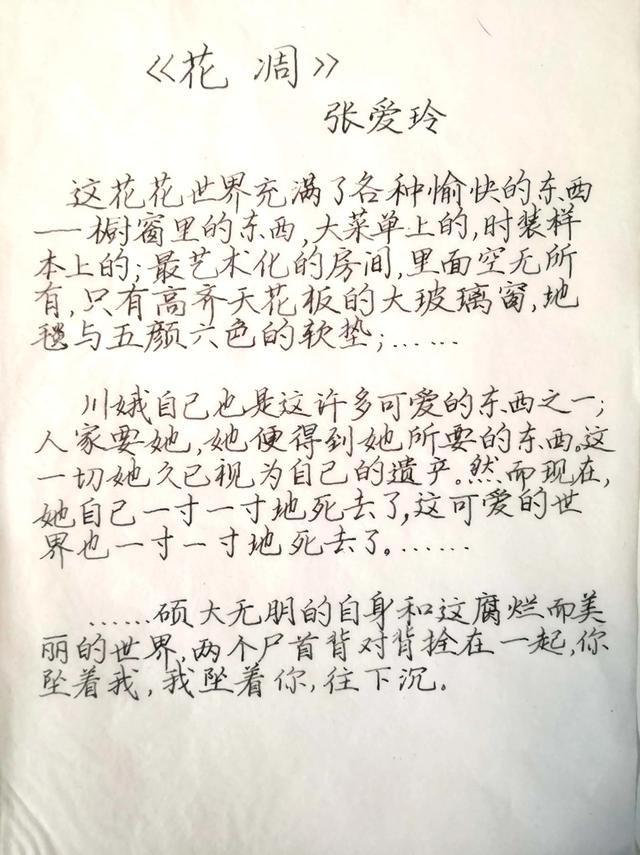 《花凋》
张爱玲
这花花世界充满了各种愉快的东西
——橱窗里的东西,大菜单上的,时装样
本上的;最艺术化的房间,里面空无所
有,只有高齐天花板的大玻璃窗,地
毯与五颜六色的软垫;……
川娥自己也是这许多可爱的东西之一;
人家要她,她便得到她所要的东西。这
一切她久已视为自己的遗产。然而现在,
她自己一寸一寸地死去了,这可爱的世
界也一寸一寸地死去了。……
……硕大无朋的自身和这腐烂而美
丽的世界,两个尸首背对背拴在一起,你
坠着我,我坠着你,往下沉。